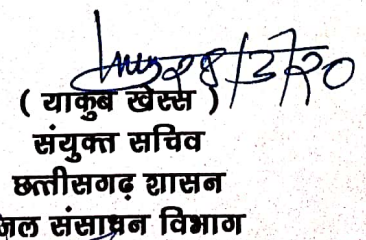 28/3/20
( याकुब खेस्स )
संयुक्त सचिव
छत्तीसगढ़ शासन
जल संसाधन विभाग